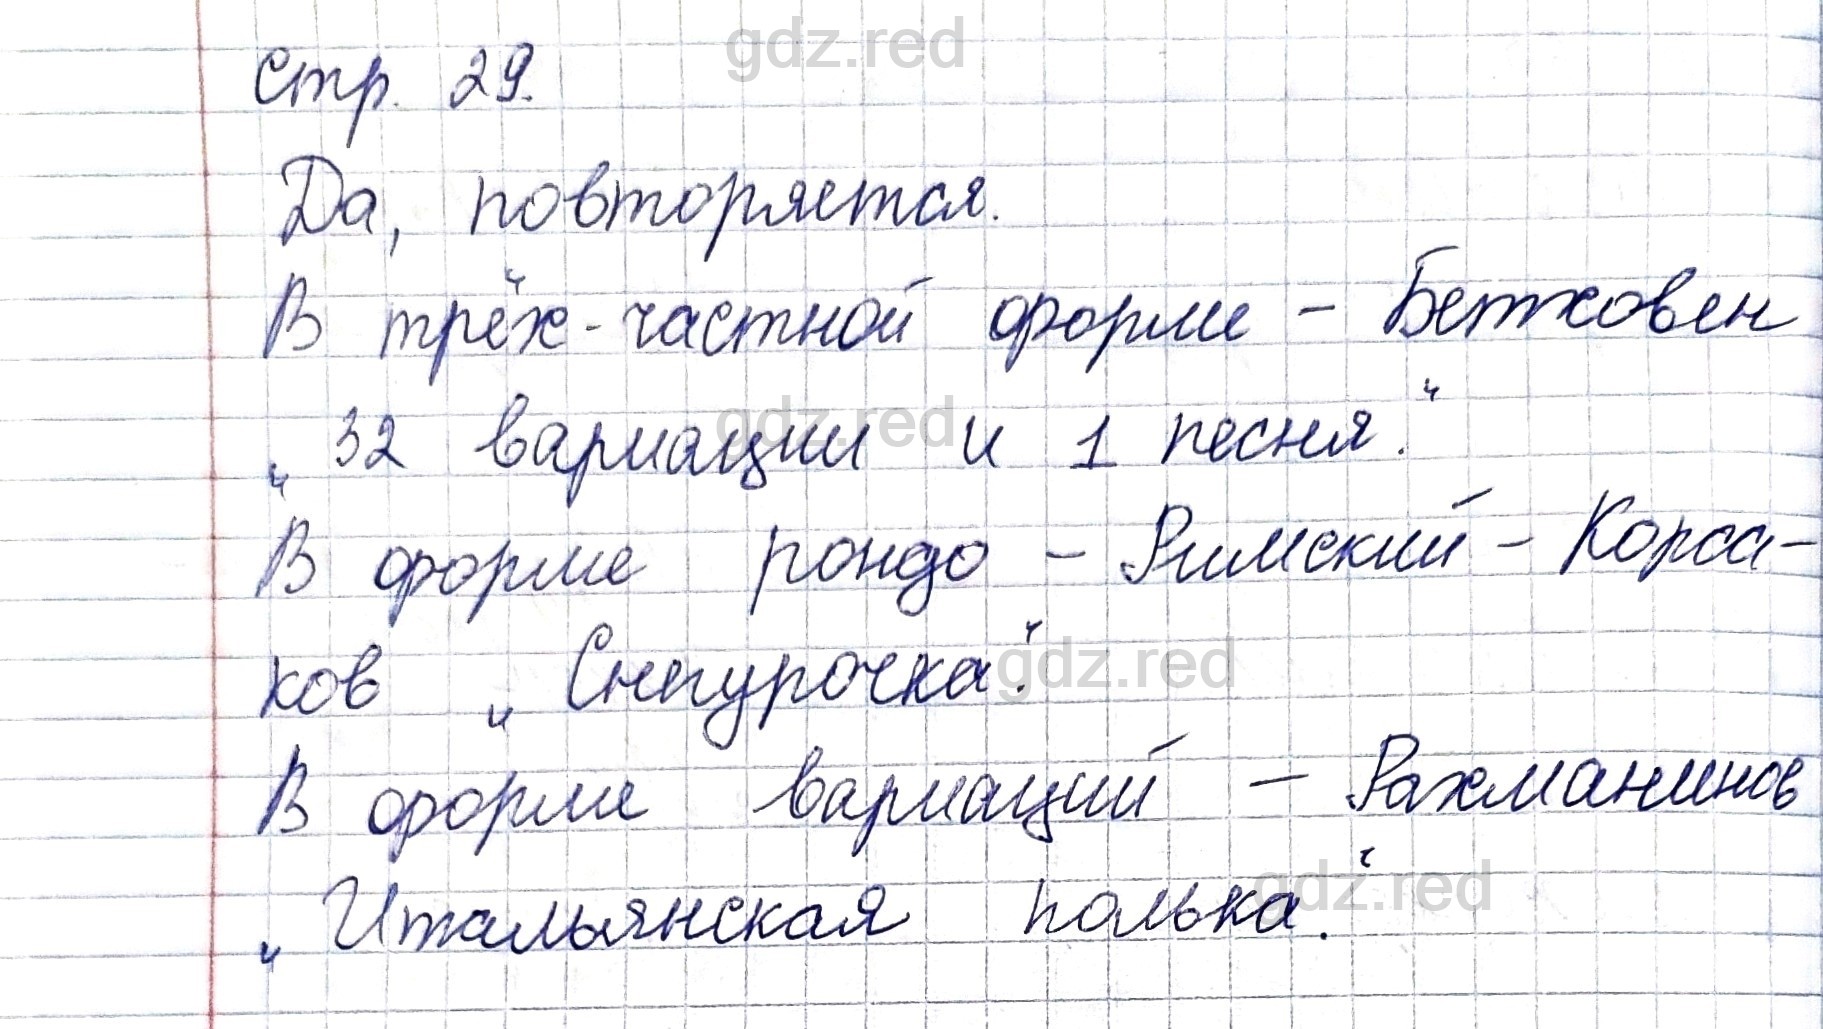 gdz.red
Стр. 29.
Да, повторяется.
В трёх-частной форме – Бетховен
gdz.red
„32 вариации и 1 песня."
В форме рондо – Римский – Корса-
ков „Снегурочка."
gdz.red
В форме вариаций – Рахманинов
gdz.red
„Итальянская полька."